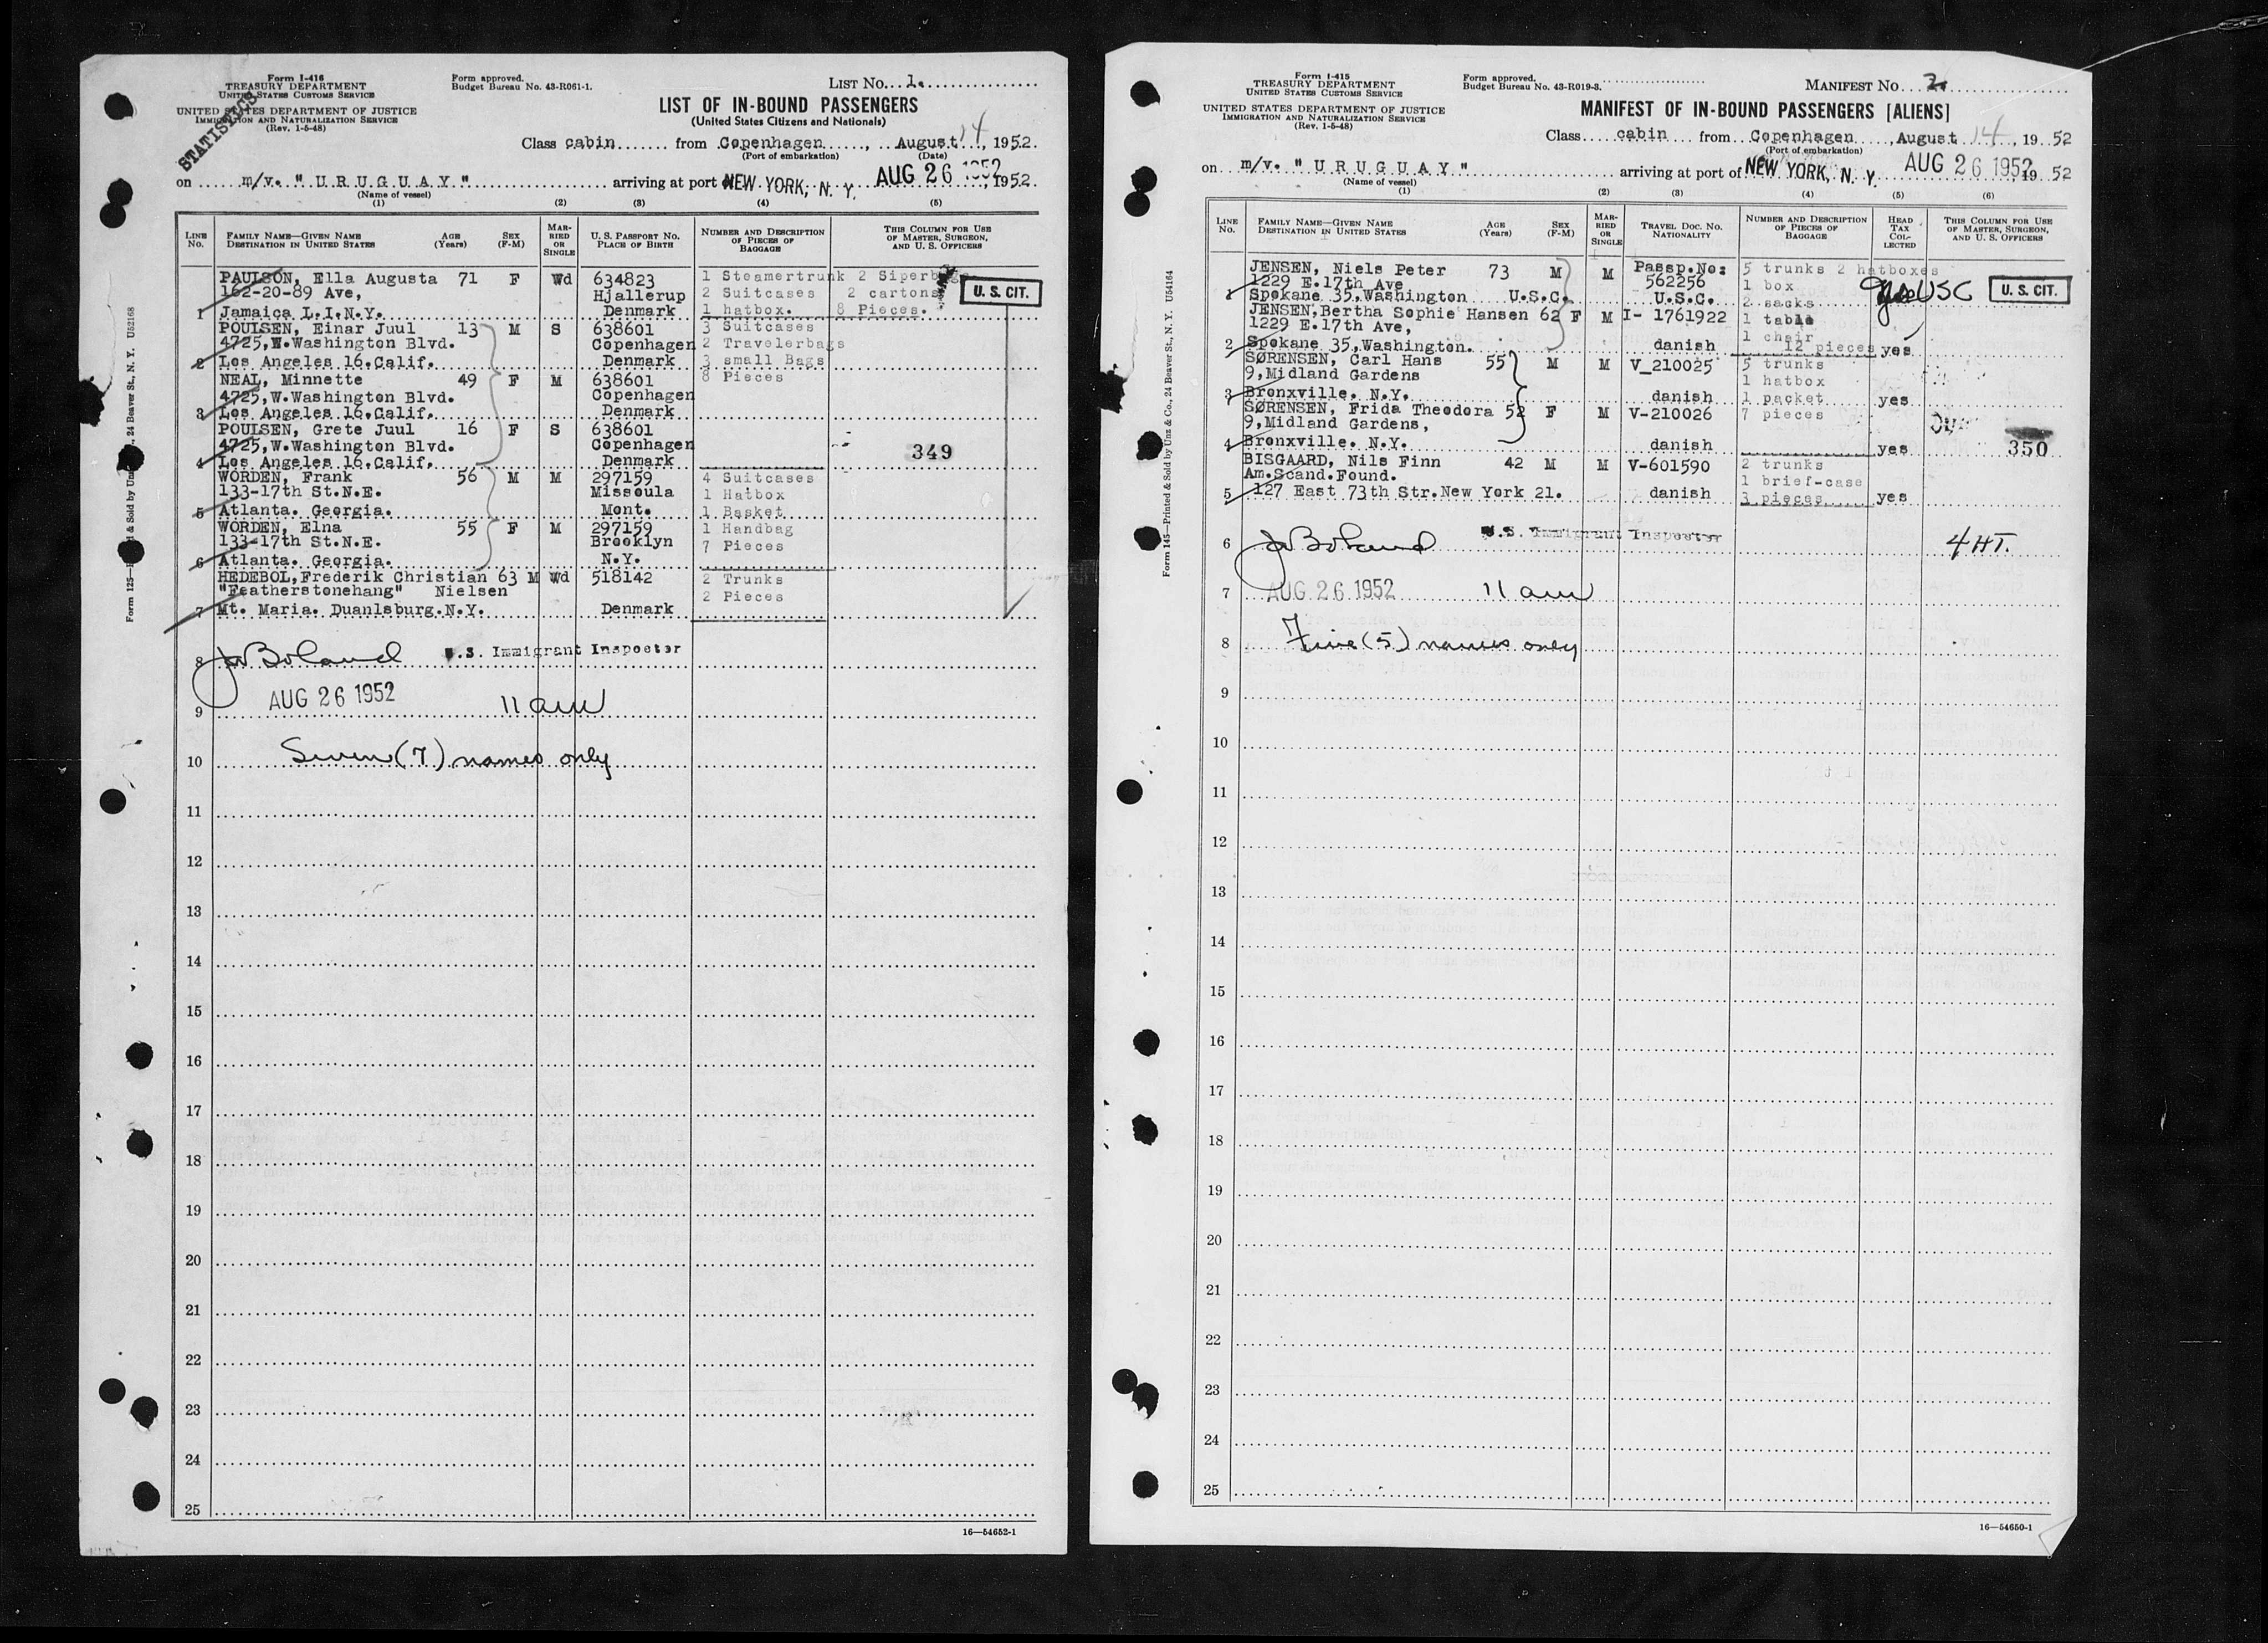 Form I-416
TREASURY DEPARTMENT
UNITED STATES CUSTOMS SERVICE
UNITED STATES DEPARTMENT OF JUSTICE
IMMIGRATION AND NATURALIZATION SERVICE
(Rev. 1-5-48)
STATISTICS
Form approved.
Budget Bureau No. 43-R061-1.
LIST NO. 1.
LIST OF IN-BOUND PASSENGERS
(United States Citizens and Nationals)
Class cabin from Copenhagen, August 14, 1952.
(Port of embarkation) (Date)
on m/v. "URUGUAY" arriving at port of NEW YORK, N. Y. AUG 26 1952, 1952.
(Name of vessel)
(1) (2) (3) (4) (5)
LINE NO. FAMILY NAME—GIVEN NAME DESTINATION IN UNITED STATES AGE (Years) SEX (F-M) MARRIED OR SINGLE U. S. PASSPORT NO. PLACE OF BIRTH NUMBER AND DESCRIPTION OF PIECES OF BAGGAGE THIS COLUMN FOR USE OF MASTER, SURGEON, AND U. S. OFFICERS
PAULSON, Ella Augusta 71 F Wd 634823 1 Steamertrunk 2 Siperbags
162-20-89 Ave, Hjallerup 2 Suitcases 2 cartons U. S. CIT.
1 Jamaica L.I.N.Y. Denmark 1 hatbox. 8 Pieces.
POULSEN, Einar Juul 13 M S 638601 3 Suitcases
4725, W.Washington Blvd. Copenhagen 2 Travelerbags
2 Los Angeles 16.Calif. Denmark 3 small Bags
NEAL, Minnette 49 F M 638601 8 Pieces
4725,W.Washington Blvd. Copenhagen
3 Los Angeles 16.Calif. Denmark
POULSEN, Grete Juul 16 F S 638601
4725,W.Washington Blvd. Copenhagen 349
4 Los Angeles 16.Calif. Denmark
WORDEN, Frank 56 M M 297159 4 Suitcases
133-17th St.N.E. Missoula 1 Hatbox
5 Atlanta. Georgia. Mont. 1 Basket
WORDEN, Elna 55 F M 297159 1 Handbag
133-17th St.N.E. Brooklyn 7 Pieces
6 Atlanta. Georgia. N.Y.
HEDEBOL,Frederik Christian 63 M Wd 518142 2 Trunks
"Featherstonehang" Nielsen 2 Pieces
7 Mt. Maria. Duanlsburg.N.Y. Denmark
8 JW Boland U.S. Immigrant Inspector
9 AUG 26 1952 11 am
10 Seven (7) names only
11
12
13
14
15
16
17
18
19
20
21
22
23
24
25
16—54652-1
24 Beaver St., N. Y. U52168
Form 125
Form I-415
TREASURY DEPARTMENT
UNITED STATES CUSTOMS SERVICE
UNITED STATES DEPARTMENT OF JUSTICE
IMMIGRATION AND NATURALIZATION SERVICE
(Rev. 1-5-48)
Form approved.
Budget Bureau No. 43-R019-3.
MANIFEST NO. 2
MANIFEST OF IN-BOUND PASSENGERS [ALIENS]
Class cabin from Copenhagen, August 14, 1952
(Port of embarkation)
on m/v. "URUGUAY" arriving at port of NEW YORK, N. Y. AUG 26 1952, 1952
(Name of vessel)
(1) (2) (3) (4) (5) (6)
LINE NO. FAMILY NAME—GIVEN NAME DESTINATION IN UNITED STATES AGE (Years) SEX (F-M) MARRIED OR SINGLE TRAVEL DOC. NO. NATIONALITY NUMBER AND DESCRIPTION OF PIECES OF BAGGAGE HEAD TAX COLLECTED THIS COLUMN FOR USE OF MASTER, SURGEON, AND U. S. OFFICERS
JENSEN, Niels Peter 73 M M Passp.No: 5 trunks 2 hatboxes
1229 E.17th Ave 562256 1 box USC U. S. CIT.
1 Spokane 35,Washington U.S.C. U.S.C. 2 sacks
JENSEN,Bertha Sophie Hansen 62 F M I- 1761922 1 table
1229 E.17th Ave, 1 chair
2 Spokane 35,Washington. danish 12 pieces yes
SØRENSEN, Carl Hans 55 M M V_210025 5 trunks
9,Midland Gardens 1 hatbox
3 Bronxville. N.Y. danish 1 packet yes
SØRENSEN, Frida Theodora 52 F M V-210026 7 pieces
9,Midland Gardens,
4 Bronxville. N.Y. danish yes 350
BISGAARD, Nils Finn 42 M M V-601590 2 trunks
Am.Scand.Found. 1 brief-case
5 127 East 73th Str.New York 21. danish 3 pieces yes
6 JW Boland U.S. Immigrant Inspector 4 HT.
7 AUG 26 1952 11 am
8 Five (5) names only
9
10
11
12
13
14
15
16
17
18
19
20
21
22
23
24
25
16—54650-1
Form 145—Printed & Sold by Unz & Co., 24 Beaver St., N. Y. U54164